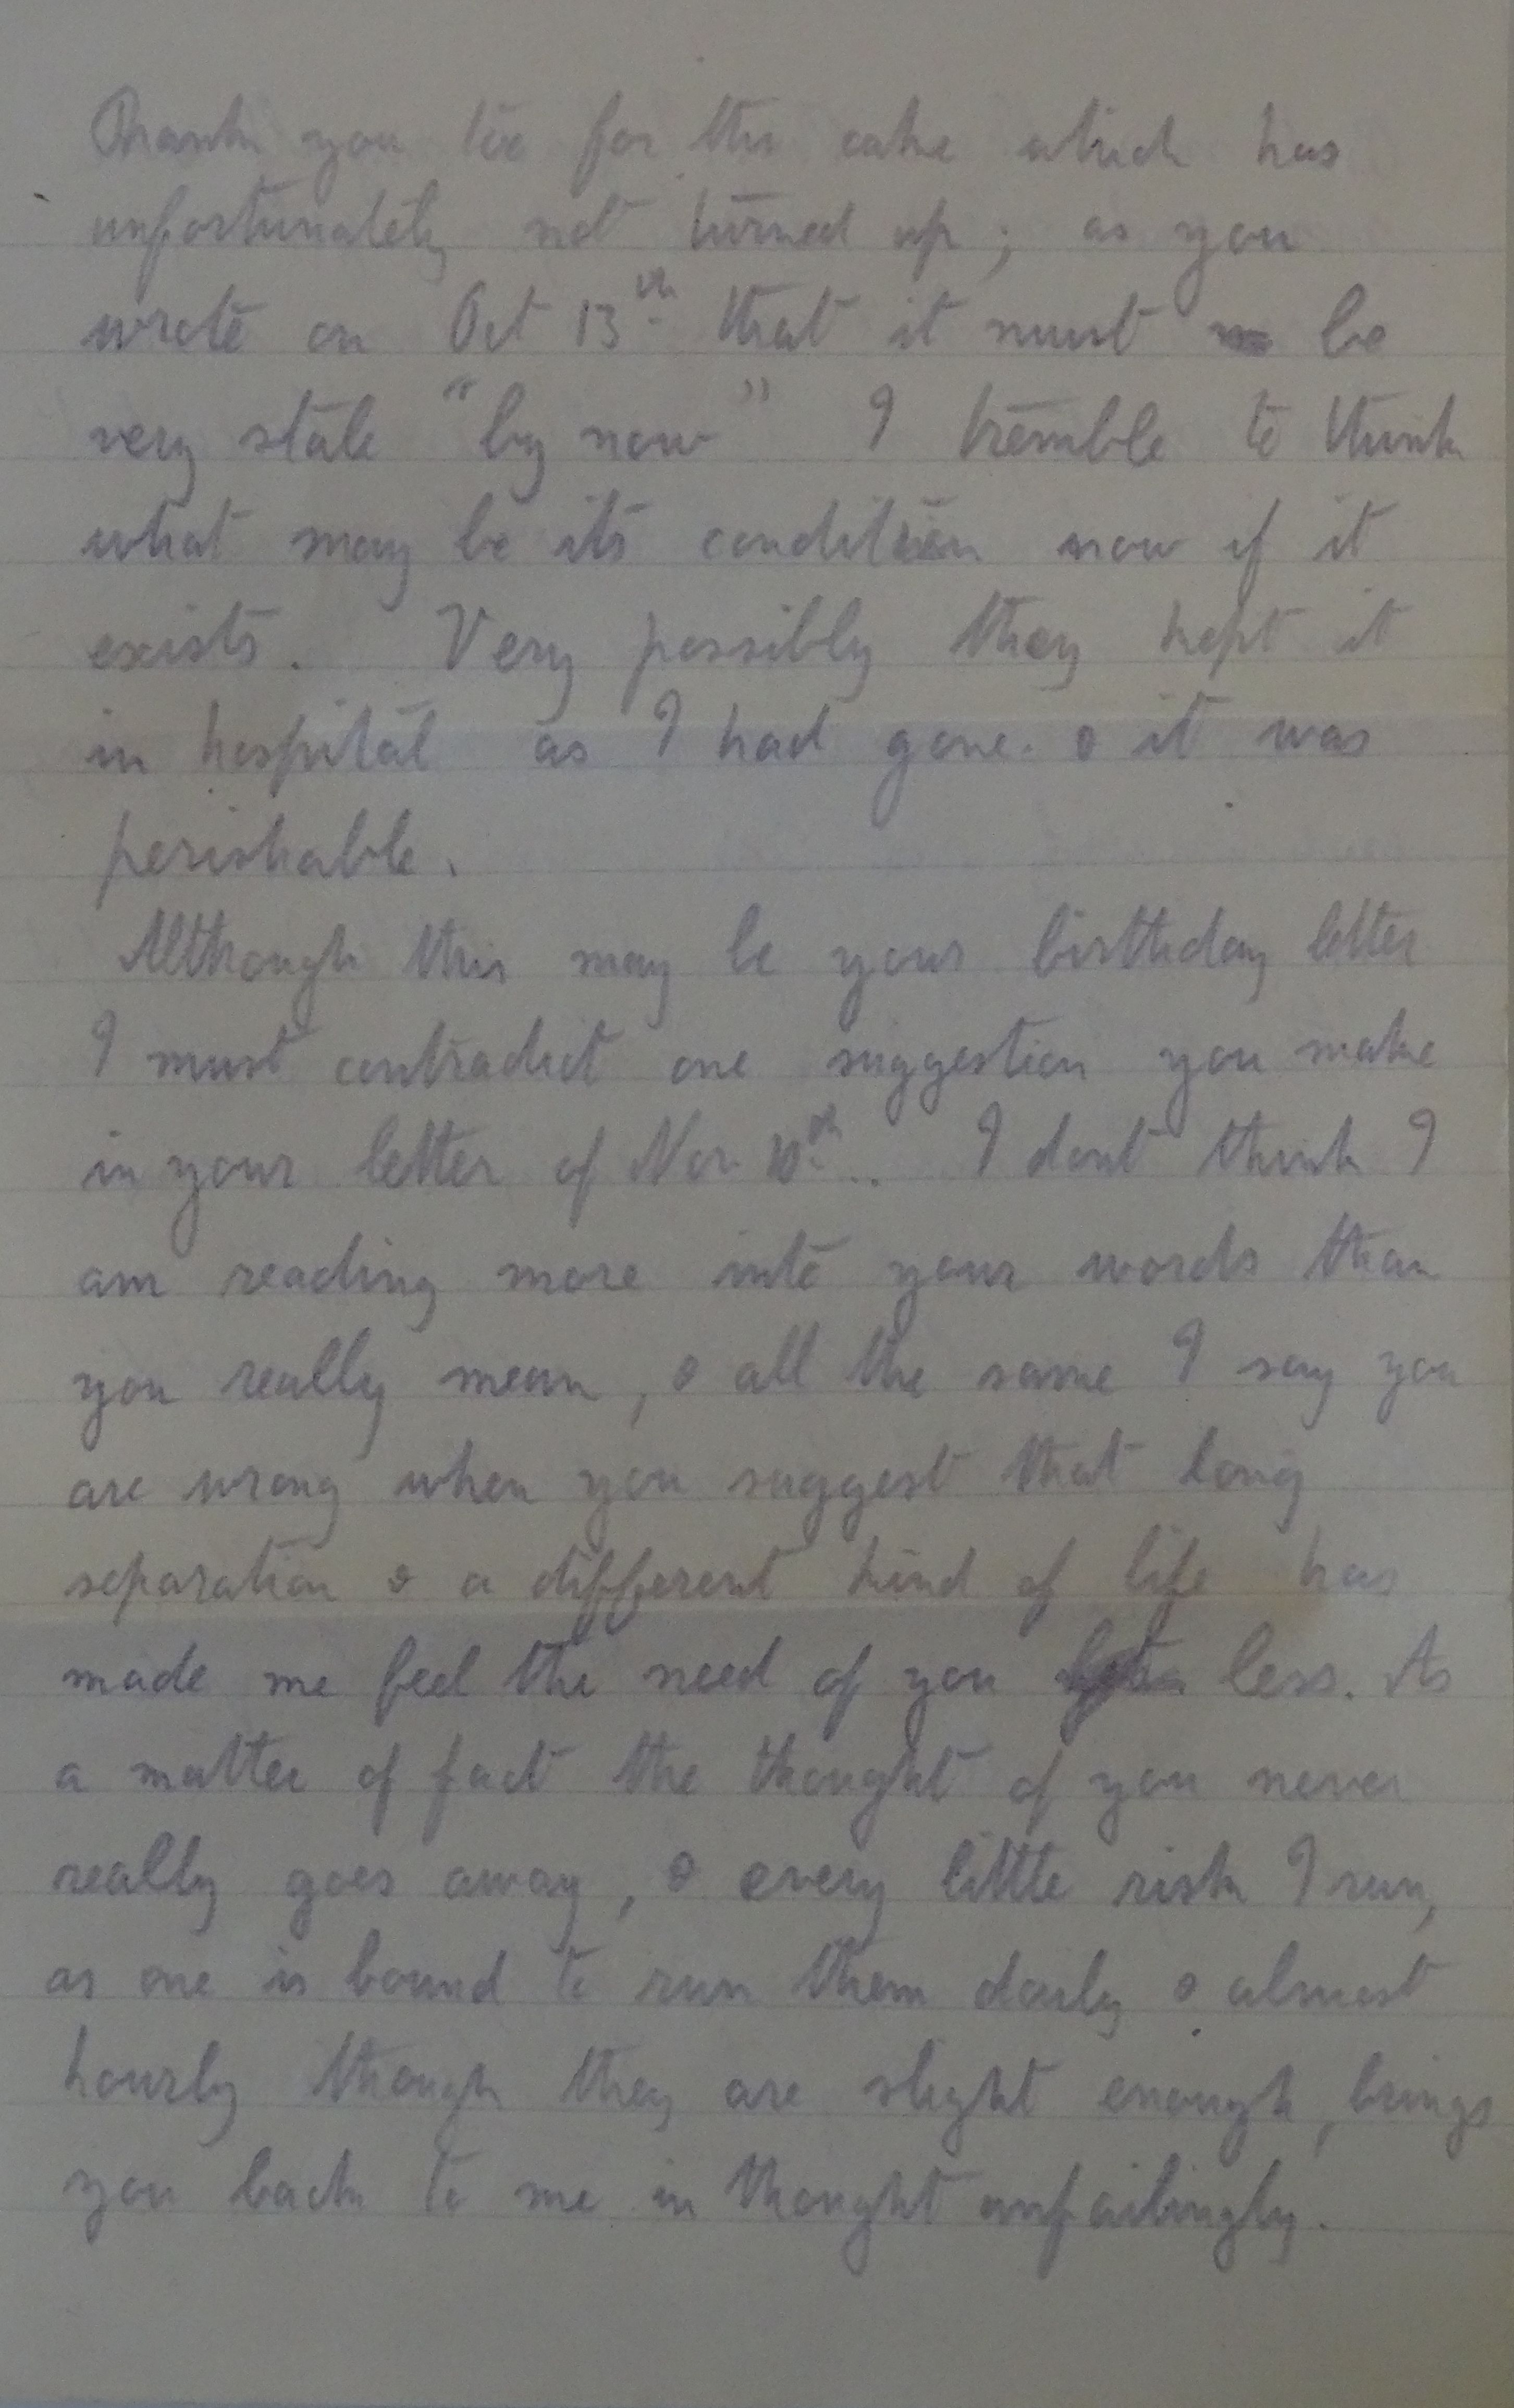 Thank you too for the cake which has
unfortunately not turned up; as you
wrote on Oct 13th that it must be
very stale "by now" I tremble to think
what may be its condition now if it
exists. Very possibly they kept it
in hospital as I had gone & it was
perishable.
Although this may be your birthday letter
I must contradict one suggestion you make
in your letter of Nov 10th.. I dont think I
am reading more into your words than
you really mean, & all the same I say you
are wrong when you suggest that long
separation & a different kind of life has
made me feel the need of you less. As
a matter of fact the thought of you never
really goes away, & every little risk I run,
as one is bound to run them daily & almost
hourly though they are slight enough, brings
you back to me in thought unfailingly.